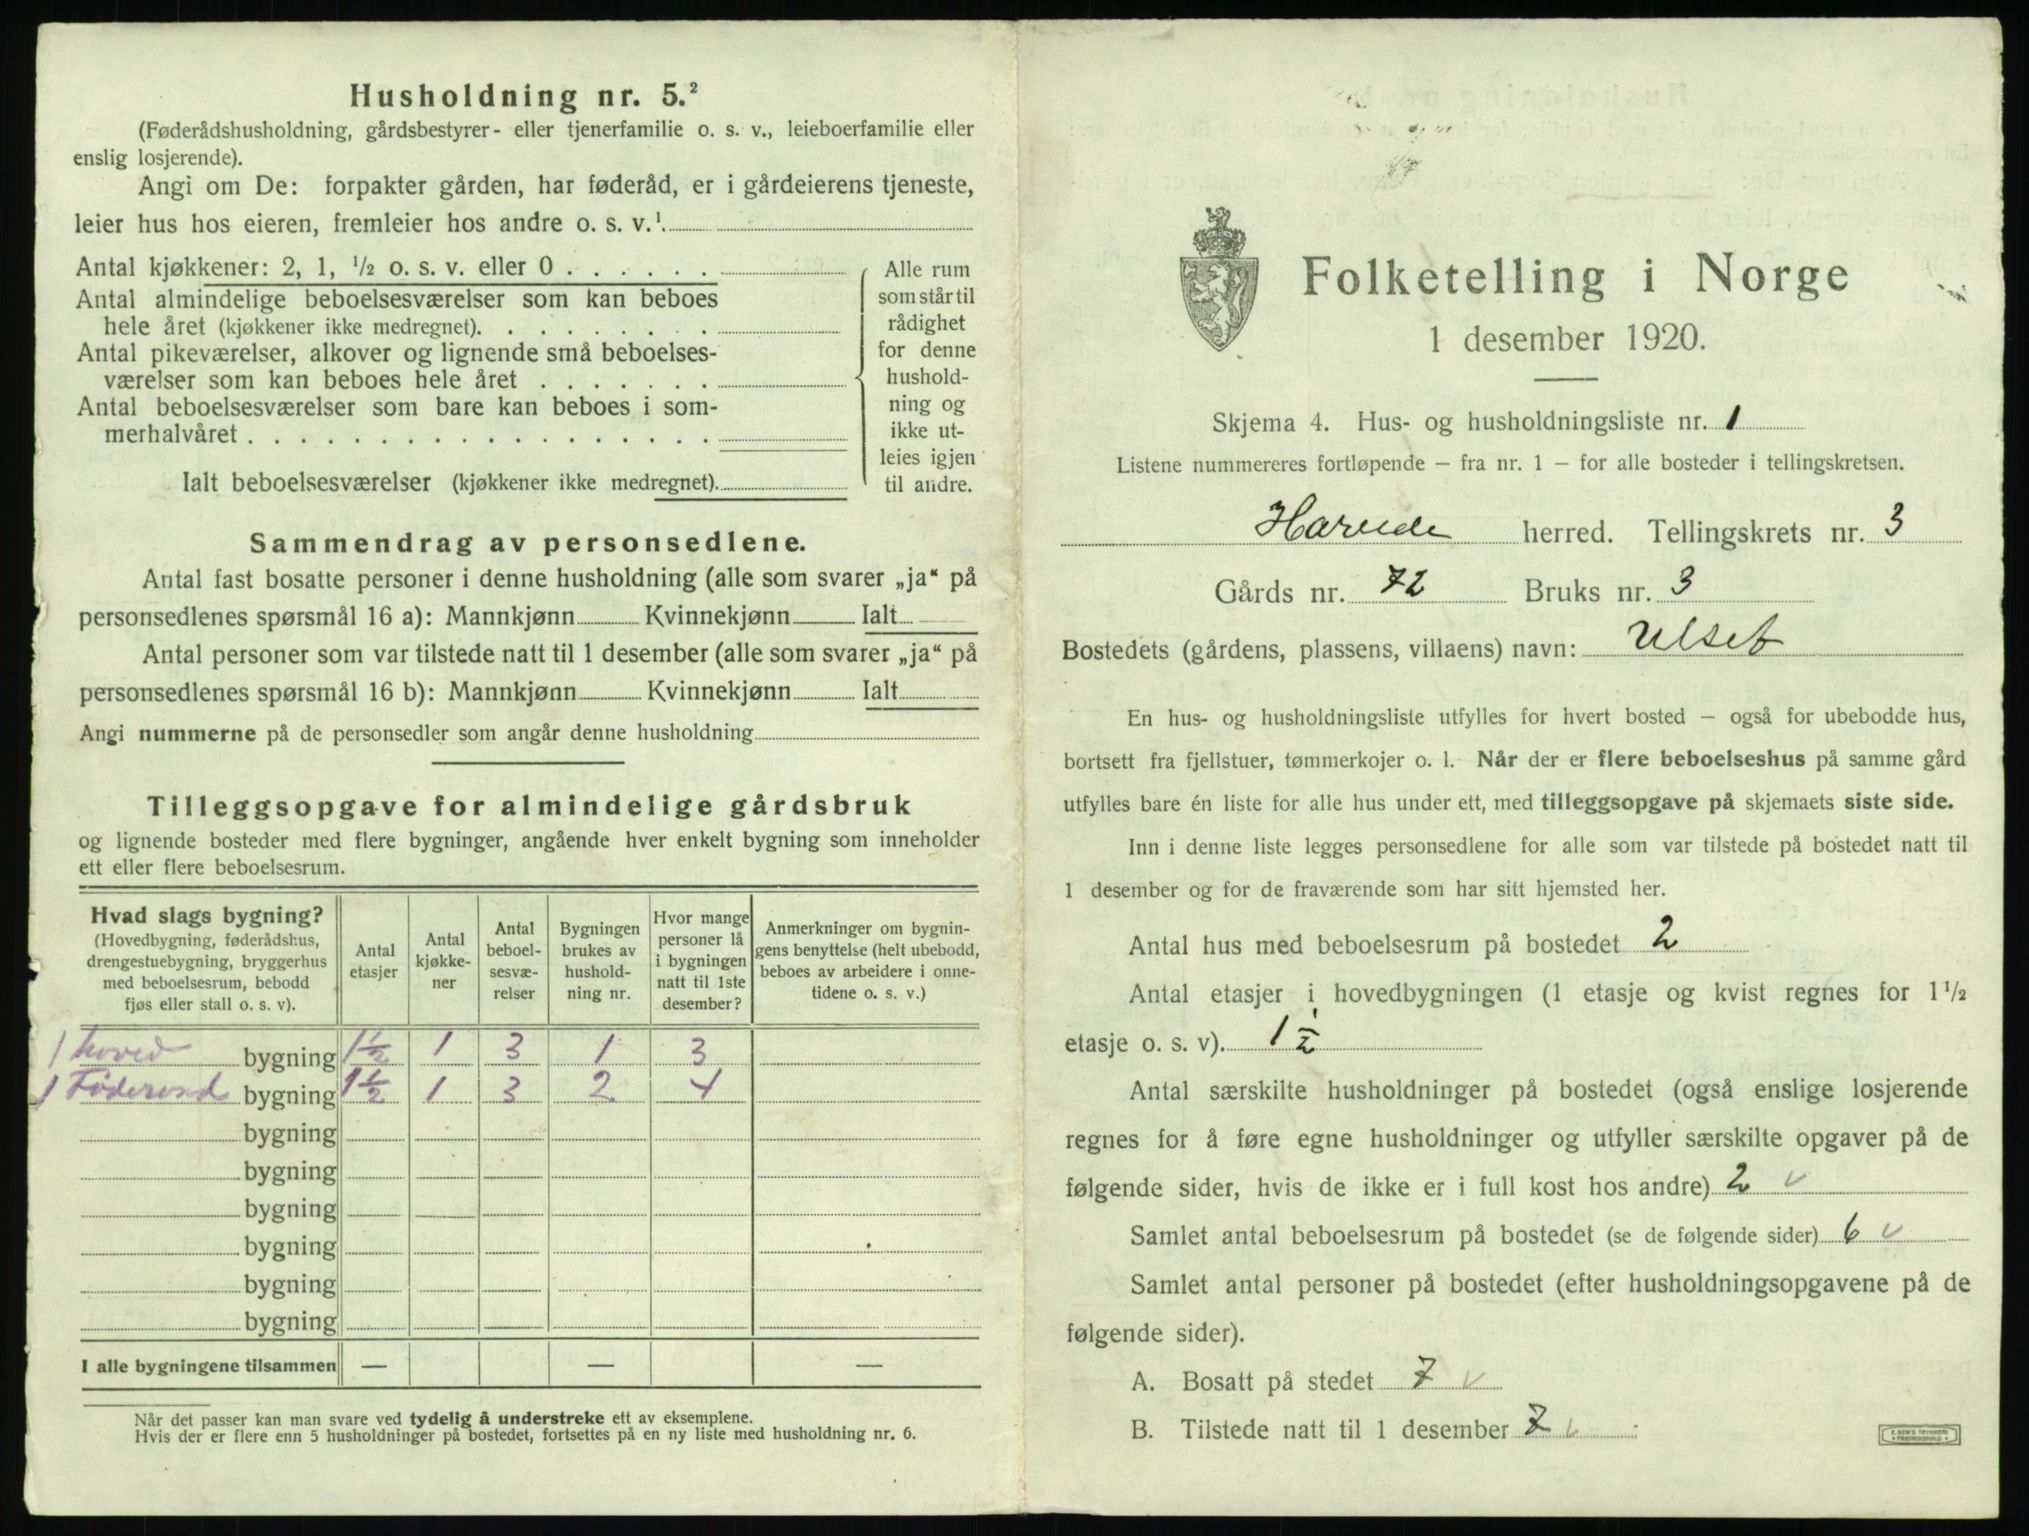 Husholdning nr. 5.²
(Føderådshusholdning, gårdsbestyrer- eller tjenerfamilie o. s. v., leieboerfamilie eller
enslig losjerende).
Angi om De: forpakter gården, har føderåd, er i gårdeierens tjeneste,
leier hus hos eieren, fremleier hos andre o. s. v.¹
Antal kjøkkener: 2, 1, ½ o. s. v. eller 0 . . . . . .
Antal almindelige beboelsesværelser som kan beboes
hele året (kjøkkener ikke medregnet). . . . . . . . .
Antal pikeværelser, alkover og lignende små beboelses-
værelser som kan beboes hele året . . . . . . .
Antal beboelsesværelser som bare kan beboes i som-
merhalvåret . . . . . . . . . . . . . . . . . .
Ialt beboelsesværelser (kjøkkener ikke medregnet).
Alle rum
som står til
rådighet
for denne
hushold-
ning og
ikke ut-
leies igjen
til andre.
Sammendrag av personsedlene.
Antal fast bosatte personer i denne husholdning (alle som svarer „ja“ på
personsedlenes spørsmål 16 a): Mannkjønn Kvinnekjønn Ialt
Antal personer som var tilstede natt til 1 desember (alle som svarer „ja“ på
personsedlenes spørsmål 16 b): Mannkjønn Kvinnekjønn Ialt
Angi nummerne på de personsedler som angår denne husholdning
Tilleggsopgave for almindelige gårdsbruk
og lignende bosteder med flere bygninger, angående hver enkelt bygning som inneholder
ett eller flere beboelsesrum.
Hvad slags bygning?
(Hovedbygning, føderådshus,
drengestuebygning, bryggerhus
med beboelsesrum, bebodd
fjøs eller stall o. s. v).
Antal
etasjer
Antal
kjøkke-
ner
Antal
beboel-
sesvæ-
relser
Bygningen
brukes av
hushold-
ning nr.
Hvor mange
personer lå
i bygningen
natt til 1ste
desember?
Anmerkninger om bygnin-
gens benyttelse (helt ubebodd,
beboes av arbeidere i onne-
tidene o. s. v.)
1 hoved bygning 1½ 1 3 1 3
1 Føderaad bygning 1½ 1 3 2 4
bygning
bygning
bygning
bygning
bygning
bygning
I alle bygningene tilsammen — — —
Når det passer kan man svare ved tydelig å understreke ett av eksemplene.
Hvis der er flere enn 5 husholdninger på bostedet, fortsettes på en ny liste med husholdning nr. 6.
Folketelling i Norge
1 desember 1920.
Skjema 4. Hus- og husholdningsliste nr. 1
Listene nummereres fortløpende – fra nr. 1 – for alle bosteder i tellingskretsen.
Hareide herred. Tellingskrets nr. 3
Gårds nr. 72 Bruks nr. 3
Bostedets (gårdens, plassens, villaens) navn: Ulset
En hus- og husholdningsliste utfylles for hvert bosted – også for ubebodde hus,
bortsett fra fjellstuer, tømmerkojer o. l. Når der er flere beboelseshus på samme gård
utfylles bare én liste for alle hus under ett, med tilleggsopgave på skjemaets siste side.
Inn i denne liste legges personsedlene for alle som var tilstede på bostedet natt til
1 desember og for de fraværende som har sitt hjemsted her.
Antal hus med beboelsesrum på bostedet 2
Antal etasjer i hovedbygningen (1 etasje og kvist regnes for 1½
etasje o. s. v). 1½
Antal særskilte husholdninger på bostedet (også enslige losjerende
regnes for å føre egne husholdninger og utfyller særskilte opgaver på de
følgende sider, hvis de ikke er i full kost hos andre) 2 v
Samlet antal beboelsesrum på bostedet (se de følgende sider) 6 v
Samlet antal personer på bostedet (efter husholdningsopgavene på de
følgende sider).
A. Bosatt på stedet 7 v
B. Tilstede natt til 1 desember 7 v